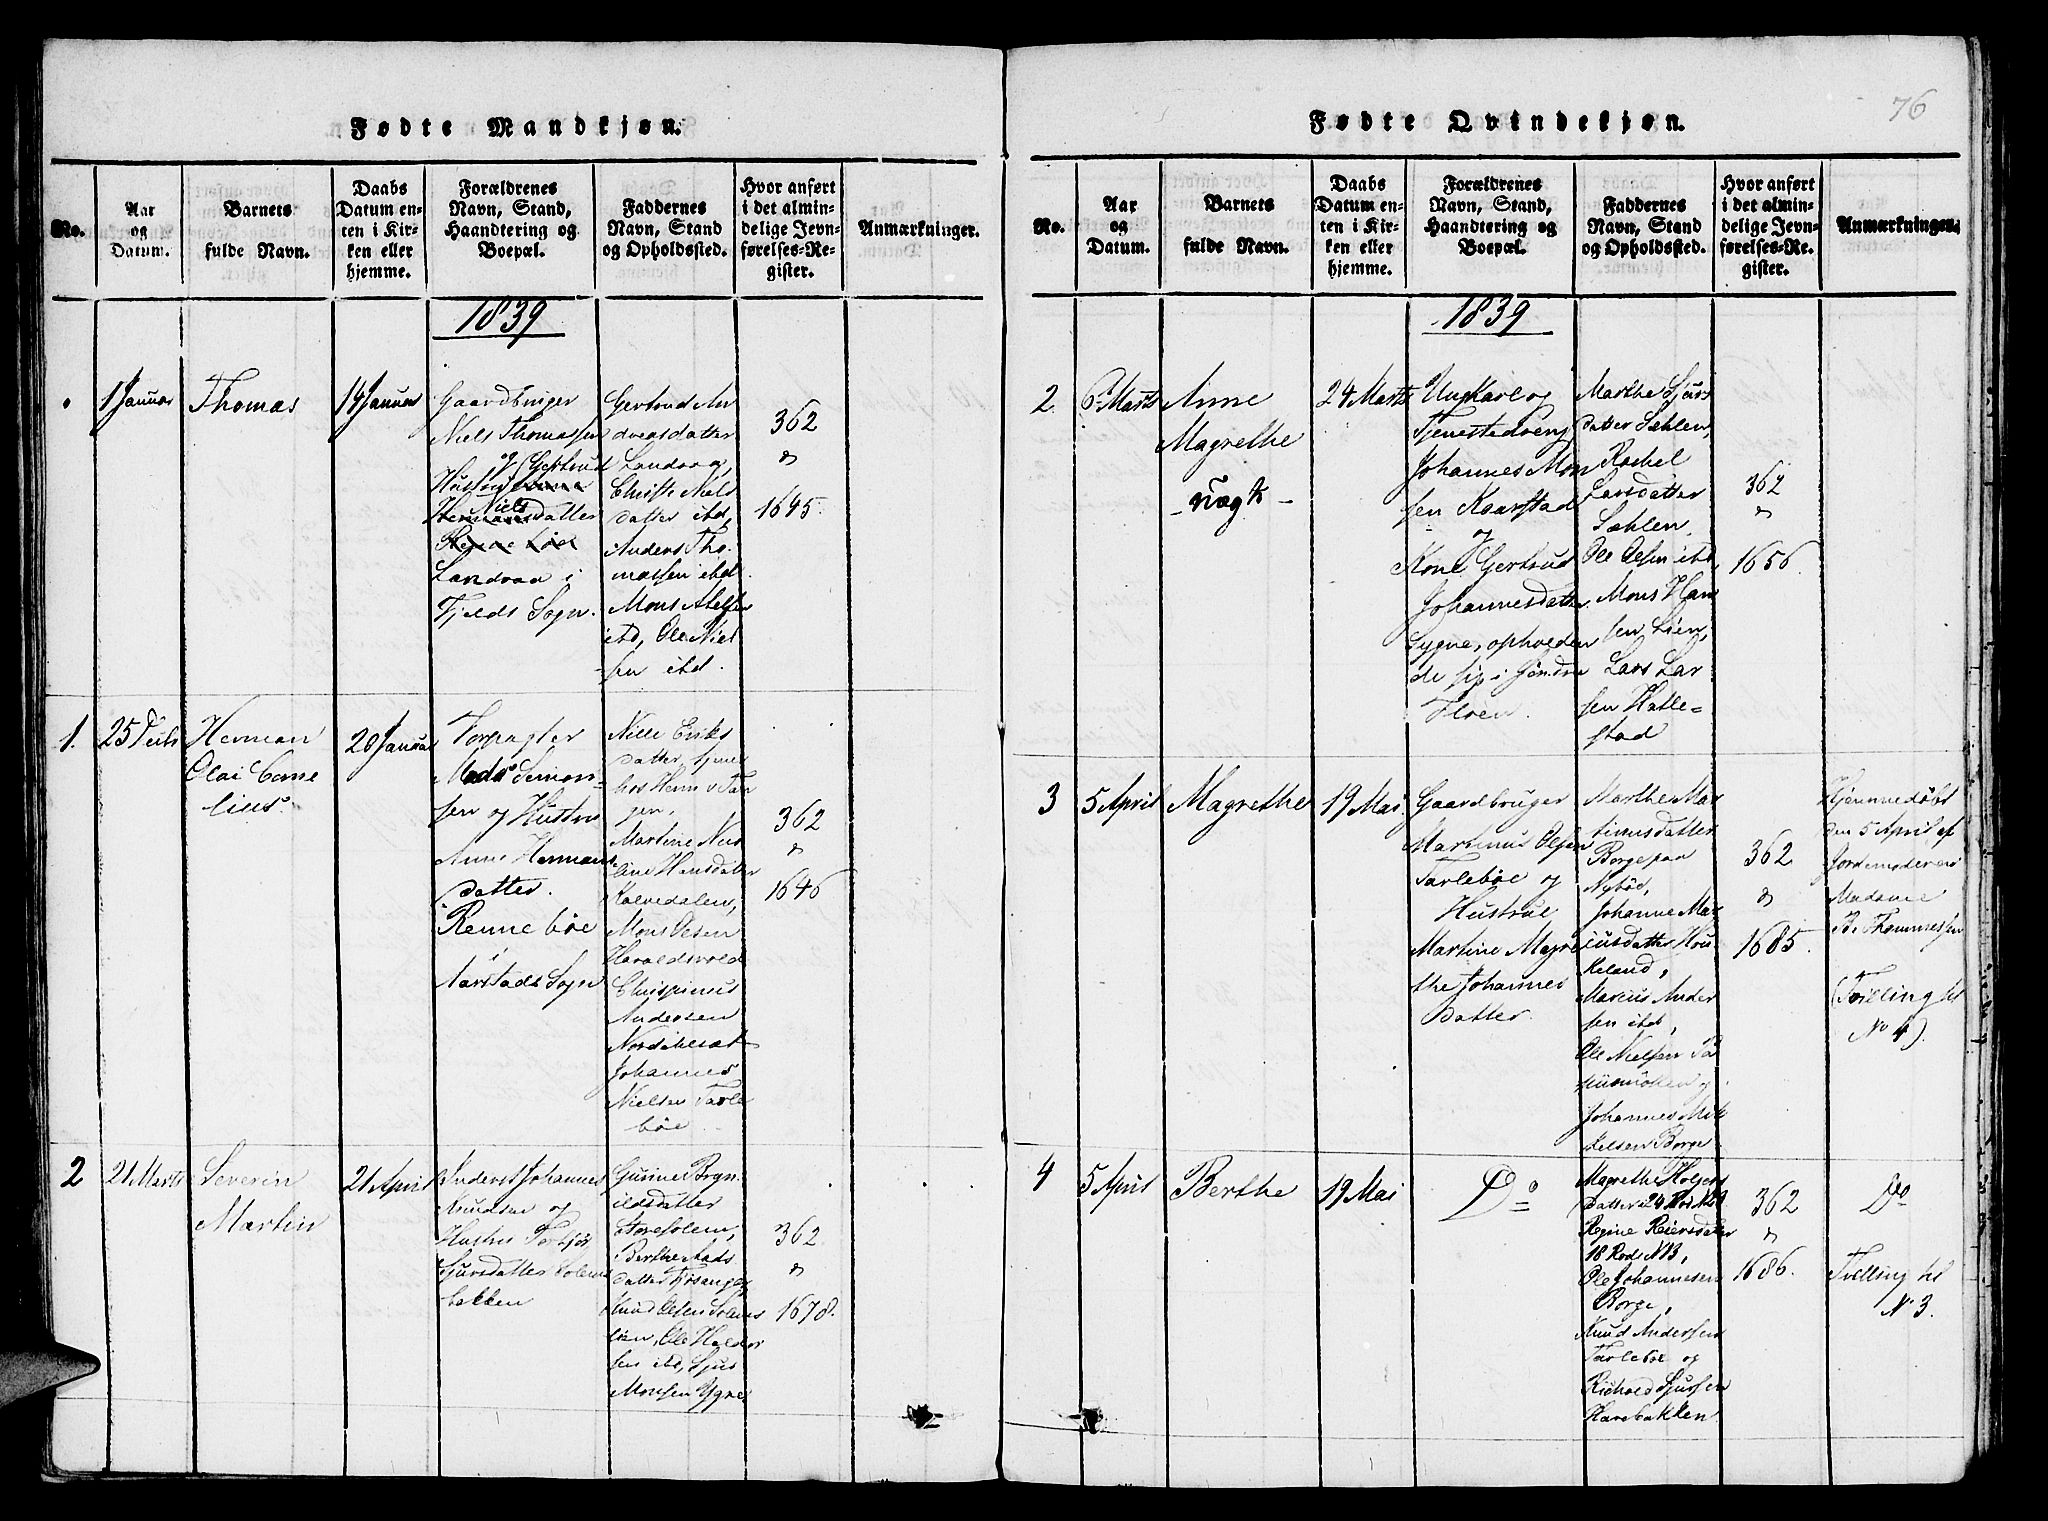 76
Fødte Mandkjøn.
No.
Aar
og
Datum.
Barnets
fulde Navn.
Daabs
Datum en-
ten i Kir-
ken eller
hjemme.
Forældrenes
Navn, Stand,
Haandtering og
Boepæl.
Faddernes
Navn, Stand
og Opholdssted.
Hvor anført
i det almin-
delige Jevn-
førelses-Re-
gister.
Anmærkninger.
1839
1 Januar
Thomas
14 Januar
Gaardbruger
Niels Thomassen
og Gertrud
Hustru
Niels
datter
Landraa i
Fjelds Sogn.
Gertrud An
dreasdatter
Landraa,
Christi Niels
datter ibd,
Anders Tho-
massen ibd
Mons Abelsen
ibd, Ole Niel
sen ibd.
362
&
1645.
1.
Herman
Olai Corne
lius.
20 Januar
Forpagter
Mads Simon-
sen og Hustru
Anne Hermans
datter.
Rennebøe
i
Aarstads Sogn
Nille Eriks
datter
hos Herm v Tan
gen,
Martine
line Hansdatter
Kalvedalen,
Mons Olsen
Haraldsvold
Chrispinus
Andersen
Johannes
Nielsen Tarle
bøe.
362
&
1646
2
21 Marts
Severin
Martin
21 April
Anders Johannes
Knudsen og
Hustru
Sjursdatter
bakken
Gunne Brgn
ildsdatter
Berthe Mads
datter Fjøsanger
Knud Olsen
Ole Haldor
sen ibd, Sjur
Monsen Ygre
362
&
1678.
Fødte Qvindekjøn.
No.
Aar
og
Datum.
Barnets
fulde Navn.
Daabs
Datum en-
ten i Kir-
ken eller
hjemme.
Forældrenes
Navn, Stand,
Haandtering og
Boepæl.
Faddernes
Navn, Stand
og Opholdssted.
Hvor anført
i det almin-
delige Jevn-
førelses-Re-
gister.
Anmærkninger.
1839
2.
6 Marts
Anne
Magrethe
24 Marts
Ungkarl og
Tjenestedreng
Johannes Mon
sen Kaarstad
og
Kone Gertrud
Johannesdatter
Sygne, opholden
de sig i Søndre
Floen.
Marthe Sjurs
datter Sæhlen,
Rachel
Larsdatter
Sæhlen,
Ole Olsen ibd,
Mons Han
sen Lien,
Lars Lar
sen Hatle-
stad
362
&
1656.
3
5 April
Magrethe
19 Mai
Gaardbruger
Martinus Olsen
Tarlebøe og
Hustrue
Martine Magre
the Johannes
datter.
Marthe Mar
tinusdatter
Borge paa
Nybøe,
Johanne Mar
cusdatter Hou-
keland,
Marcus Ander
sen ibd,
Ole Nielsen
og
Johannes Mik
kelsen Borge
362
&
1685.
Hjemmedøbt
den 5 April af
Jordemoderen
Madame
B. Thommesen
(Tvilling til
No 4).
4
5 April
Berthe
19 Mai
Do
Magrethe Holgers
datter 24 Rode N 29
Regine Reiersdatter
18 Rode N 13,
Ole Johannesen
Borge,
Knud Andersen
Tarlebøe og
Richold Sjursen
Harebakken
362
&
1686.
Do
Tvilling til
N 3.